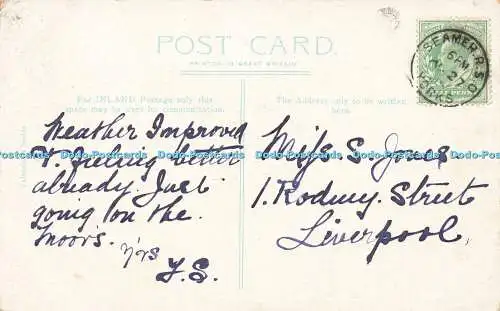 POST CARD.
PRINTED IN GREAT BRITAIN
For INLAND Postage only this
space may be used for communication.
The Address only to be written
here.
SEAMER.R.S.O
6 PM
Weather Improved
& feeling better
already. Just
going on the
moors.
Y'rs
F.S.
Miss S. Jones
1. Rodney. Street
Liverpool.
Dodo-Postcards Dodo-Postcards Dodo-Postcards Dodo-Postcards Dodo-Postcards